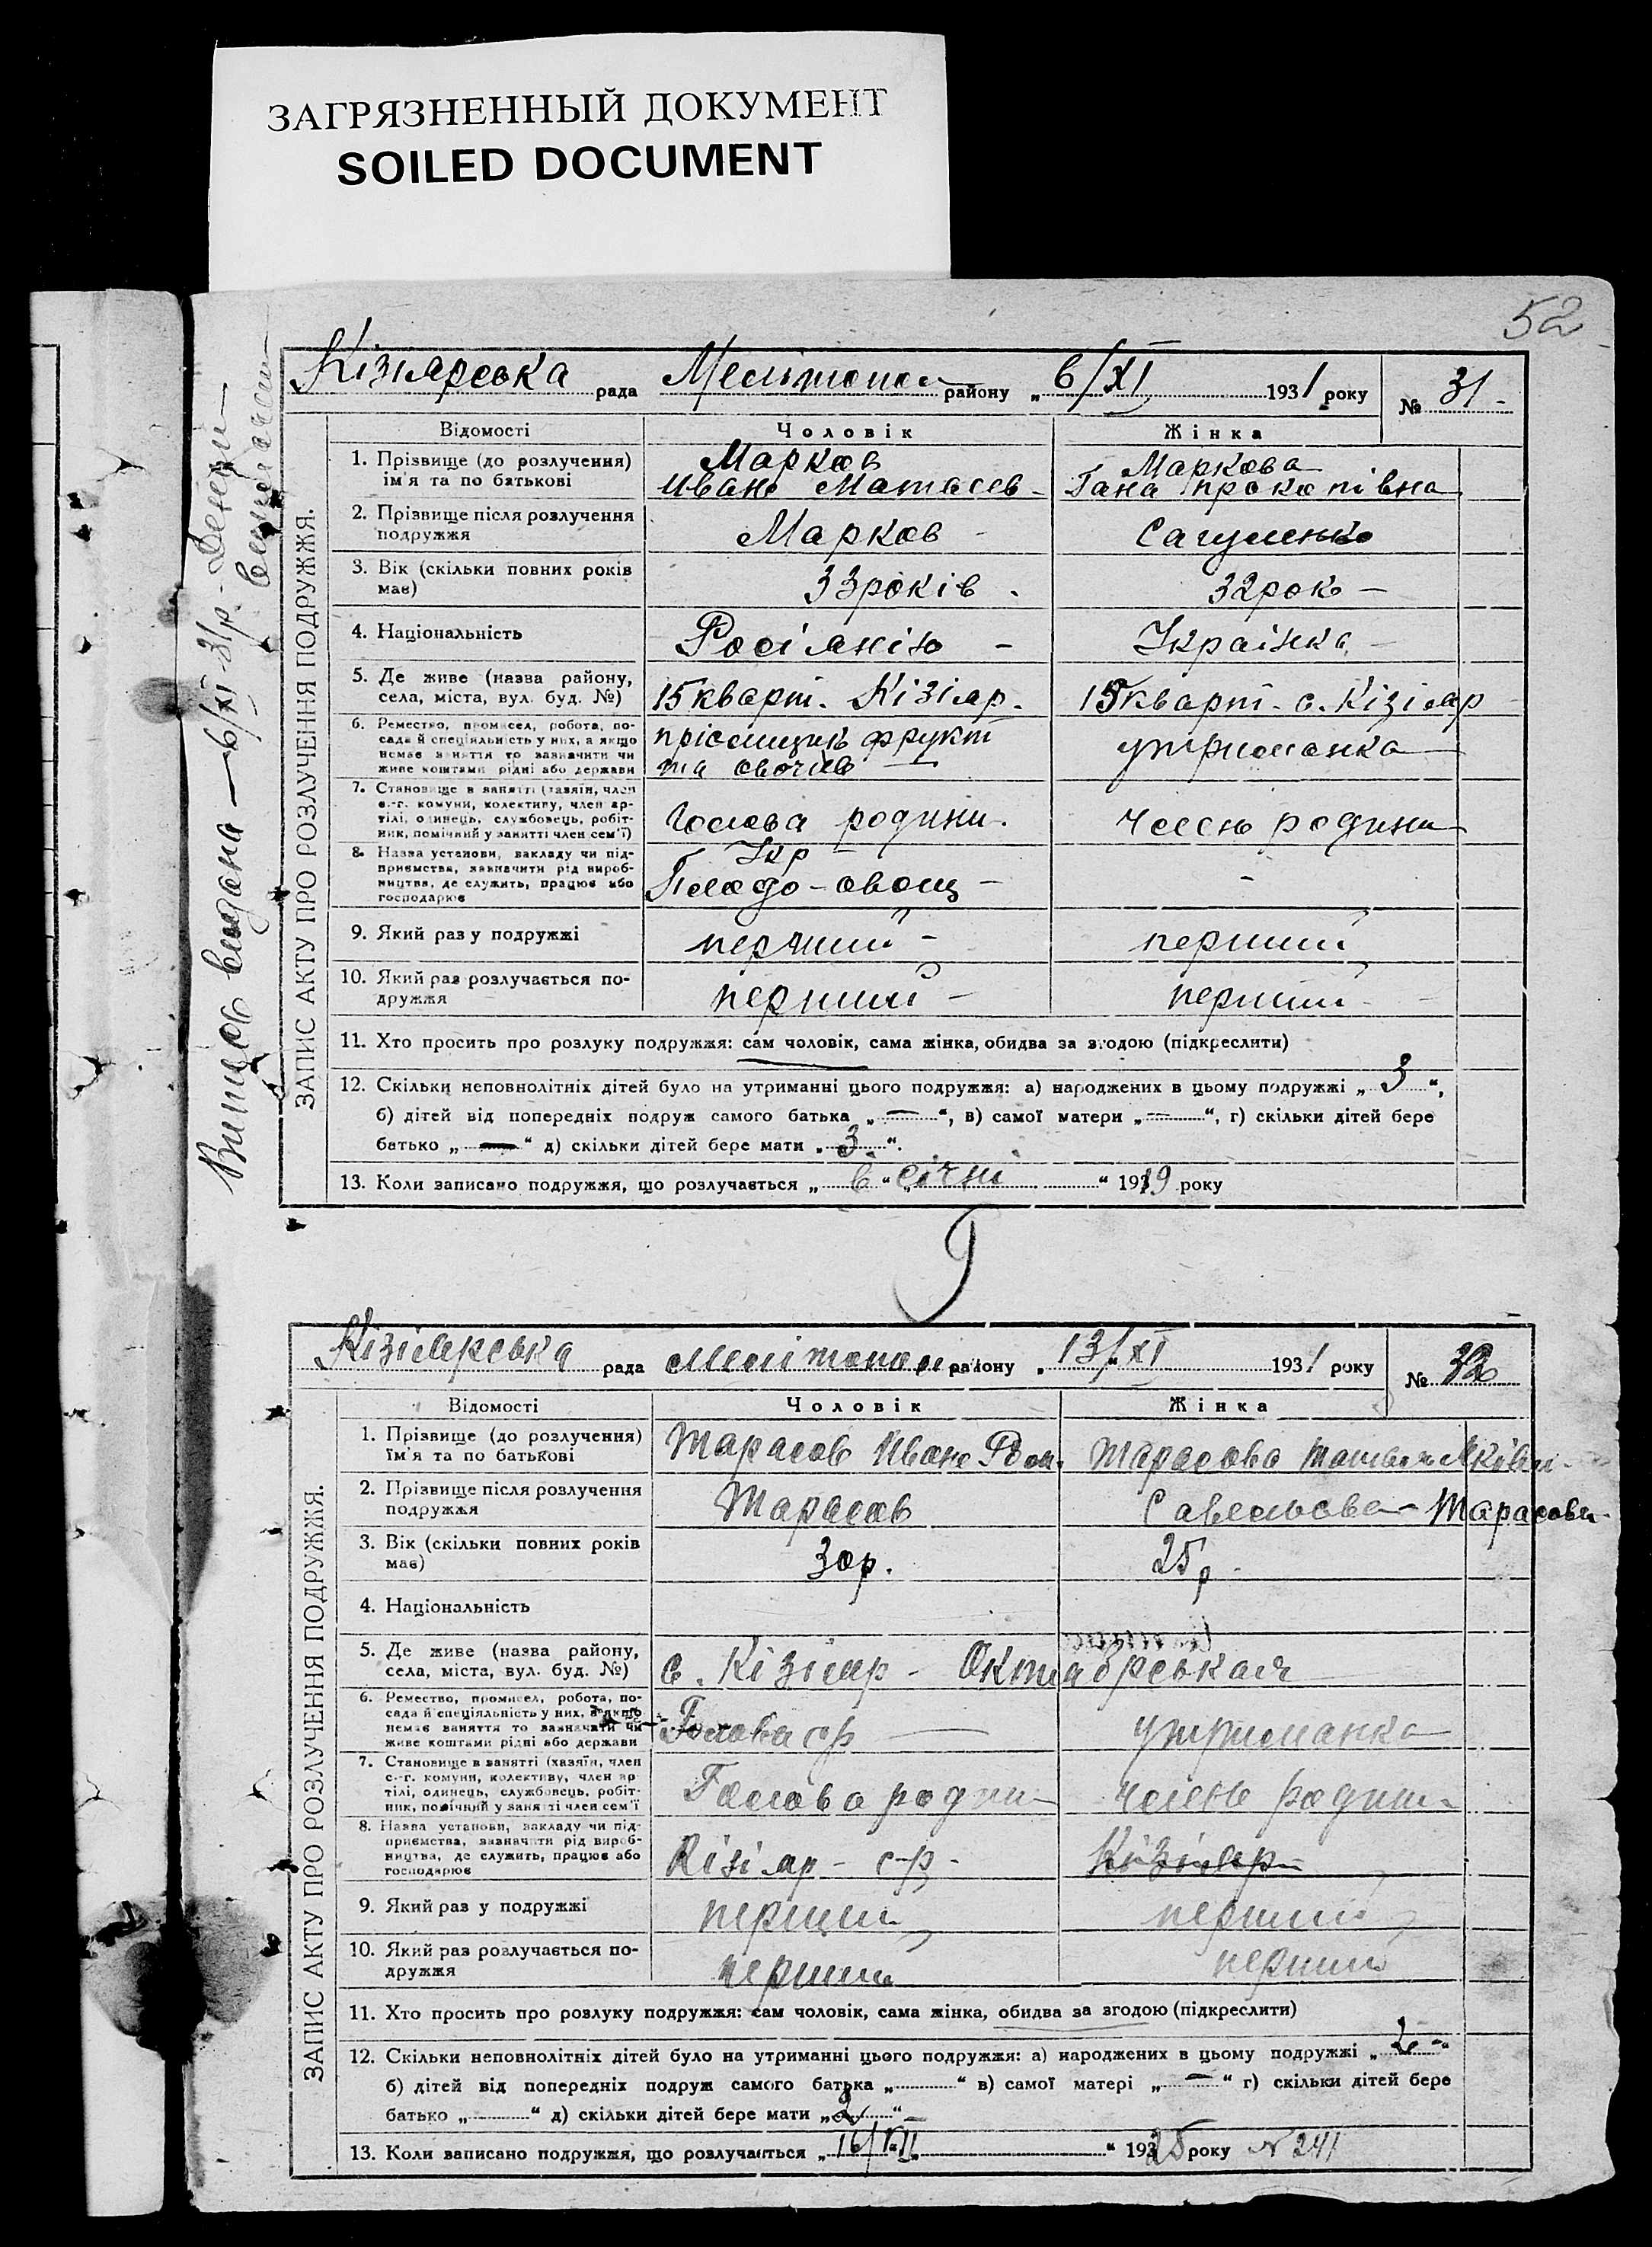 ЗАГРЯЗНЕННЫЙ ДОКУМЕНТ
SOILED DOCUMENT
52
Кізіярська рада Мелітопол району „ 6/XI 1931 року № 31 -
Відомості Чоловік Жінка
ЗАПИС АКТУ ПРО РОЗЛУЧЕННЯ ПОДРУЖЖЯ.
1. Прізвище (до розлучення) Марков Маркова
ім'я та по батькові Иван Гана Прокопівна
2. Прізвище після розлучення
подружжя Марков -
3. Вік (скільки повних років
має) 33 років. 32 рок -
4. Національність Росіянін - Українка -
5. Де живе (назва району,
села, міста, вул. буд. №) 15 кварт. Кізіяр. 15 кварт. с. Кізіяр
6. Ремество, промисел, робота, по-
сада й спеціяльність у них, а якщо фрукт
немає заняття то зазначити чи та овочів утриманка
живе коштами рідні або держави
7. Становище в занятті (хазяїн, член
с.-г. комуни, колективу, член ар-
тілі, одинець, службовець, робіт- Голова родини. Член родини
ник, помічний у занятті член сем'ї)
8. Назва установи, закладу чи під- Укр
приємства, зазначити рід вироб-
ництва, де служить, працює або Плодо-овощ - -
господарює
9. Який раз у подружжі перший - перший
10. Який раз розлучається по-
дружжя перший - перший -
11. Хто просить про розлуку подружжя: сам чоловік, сама жінка, обидва за згодою (підкреслити)
12. Скільки неповнолітніх дітей було на утриманні цього подружжя: а) народжених в цьому подружжі „ 3 “,
б) дітей від попередніх подруж самого батька „ — “, в) самої матери „ — “, г) скільки дітей бере
батько „ — “ д) скільки дітей бере мати „ 3 “.
13. Коли записано подружжя, що розлучається „ в “ січні “ 1919 року
Кізіярська рада Мелітопол району „ 13/XI 1931 року № 32
Відомості Чоловік Жінка
ЗАПИС АКТУ ПРО РОЗЛУЧЕННЯ ПОДРУЖЖЯ.
1. Прізвище (до розлучення) Тарасов Иван Тарасова
ім'я та по батькові
2. Прізвище після розлучення
подружжя Тарасов Савельева - Тарасова
3. Вік (скільки повних років
має) 30 р. 25 р.
4. Національність
5. Де живе (назва району,
села, міста, вул. буд. №) с. Кізіяр - Октябрськая
6. Ремество, промисел, робота, по-
сада й спеціяльність у них, а якщо
немає заняття то зазначати чи Голова с/р — утриманка
живе коштами рідні або держави
7. Становище в занятті (хазяїн, член
с.-г. комуни, колективу, член ар-
тілі, одинець, службовець, робіт- Голова родин член родин
ник, помічний у занятті член сем'ї
8. Назва установи, закладу чи під-
приємства, зазначити рід вироб-
ництва, де служить, працює або Кізіяр - с-р - Кізіяр
господарює
9. Який раз у подружжі перший перший
10. Який раз розлучається по-
дружжя перший перший
11. Хто просить про розлуку подружжя: сам чоловік, сама жінка, обидва за згодою (підкреслити)
12. Скільки неповнолітніх дітей було на утриманні цього подружжя: а) народжених в цьому подружжі „ 2 “
б) дітей від попередніх подруж самого батька „ “ в) самої матері „ — “ г) скільки дітей бере
батько „ “ д) скільки дітей бере мати „ 2 “
13. Коли записано подружжя, що розлучається „ 16/VII “ 1925 року № 241